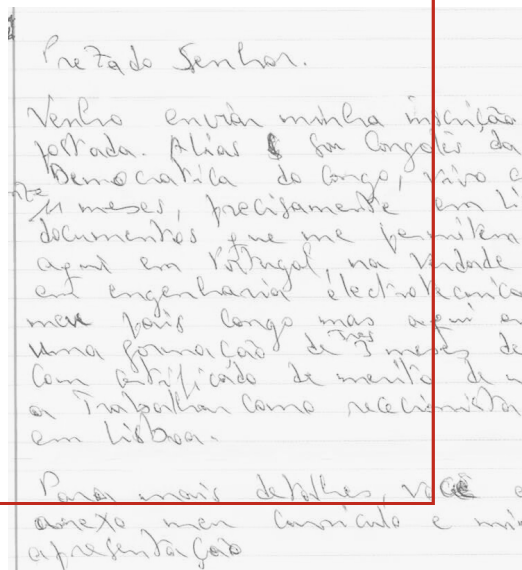 Prezado Senhor.
Venho enviar minha inscrição
postada. Alias sou Congolês da
Democratica do Congo, vivo
11 meses, precisamente em Li
documentos que me permitem
aqui em Portugal, na verdade
em engenharia électrotecnico
meu pais Congo mas aqui
uma formação de três 3 meses de
Com certificado de merito de
a Trabalhar como rececionista
em Lisboa.
Para mais detalhes, você
anexo meu Curriculo e
apresentação